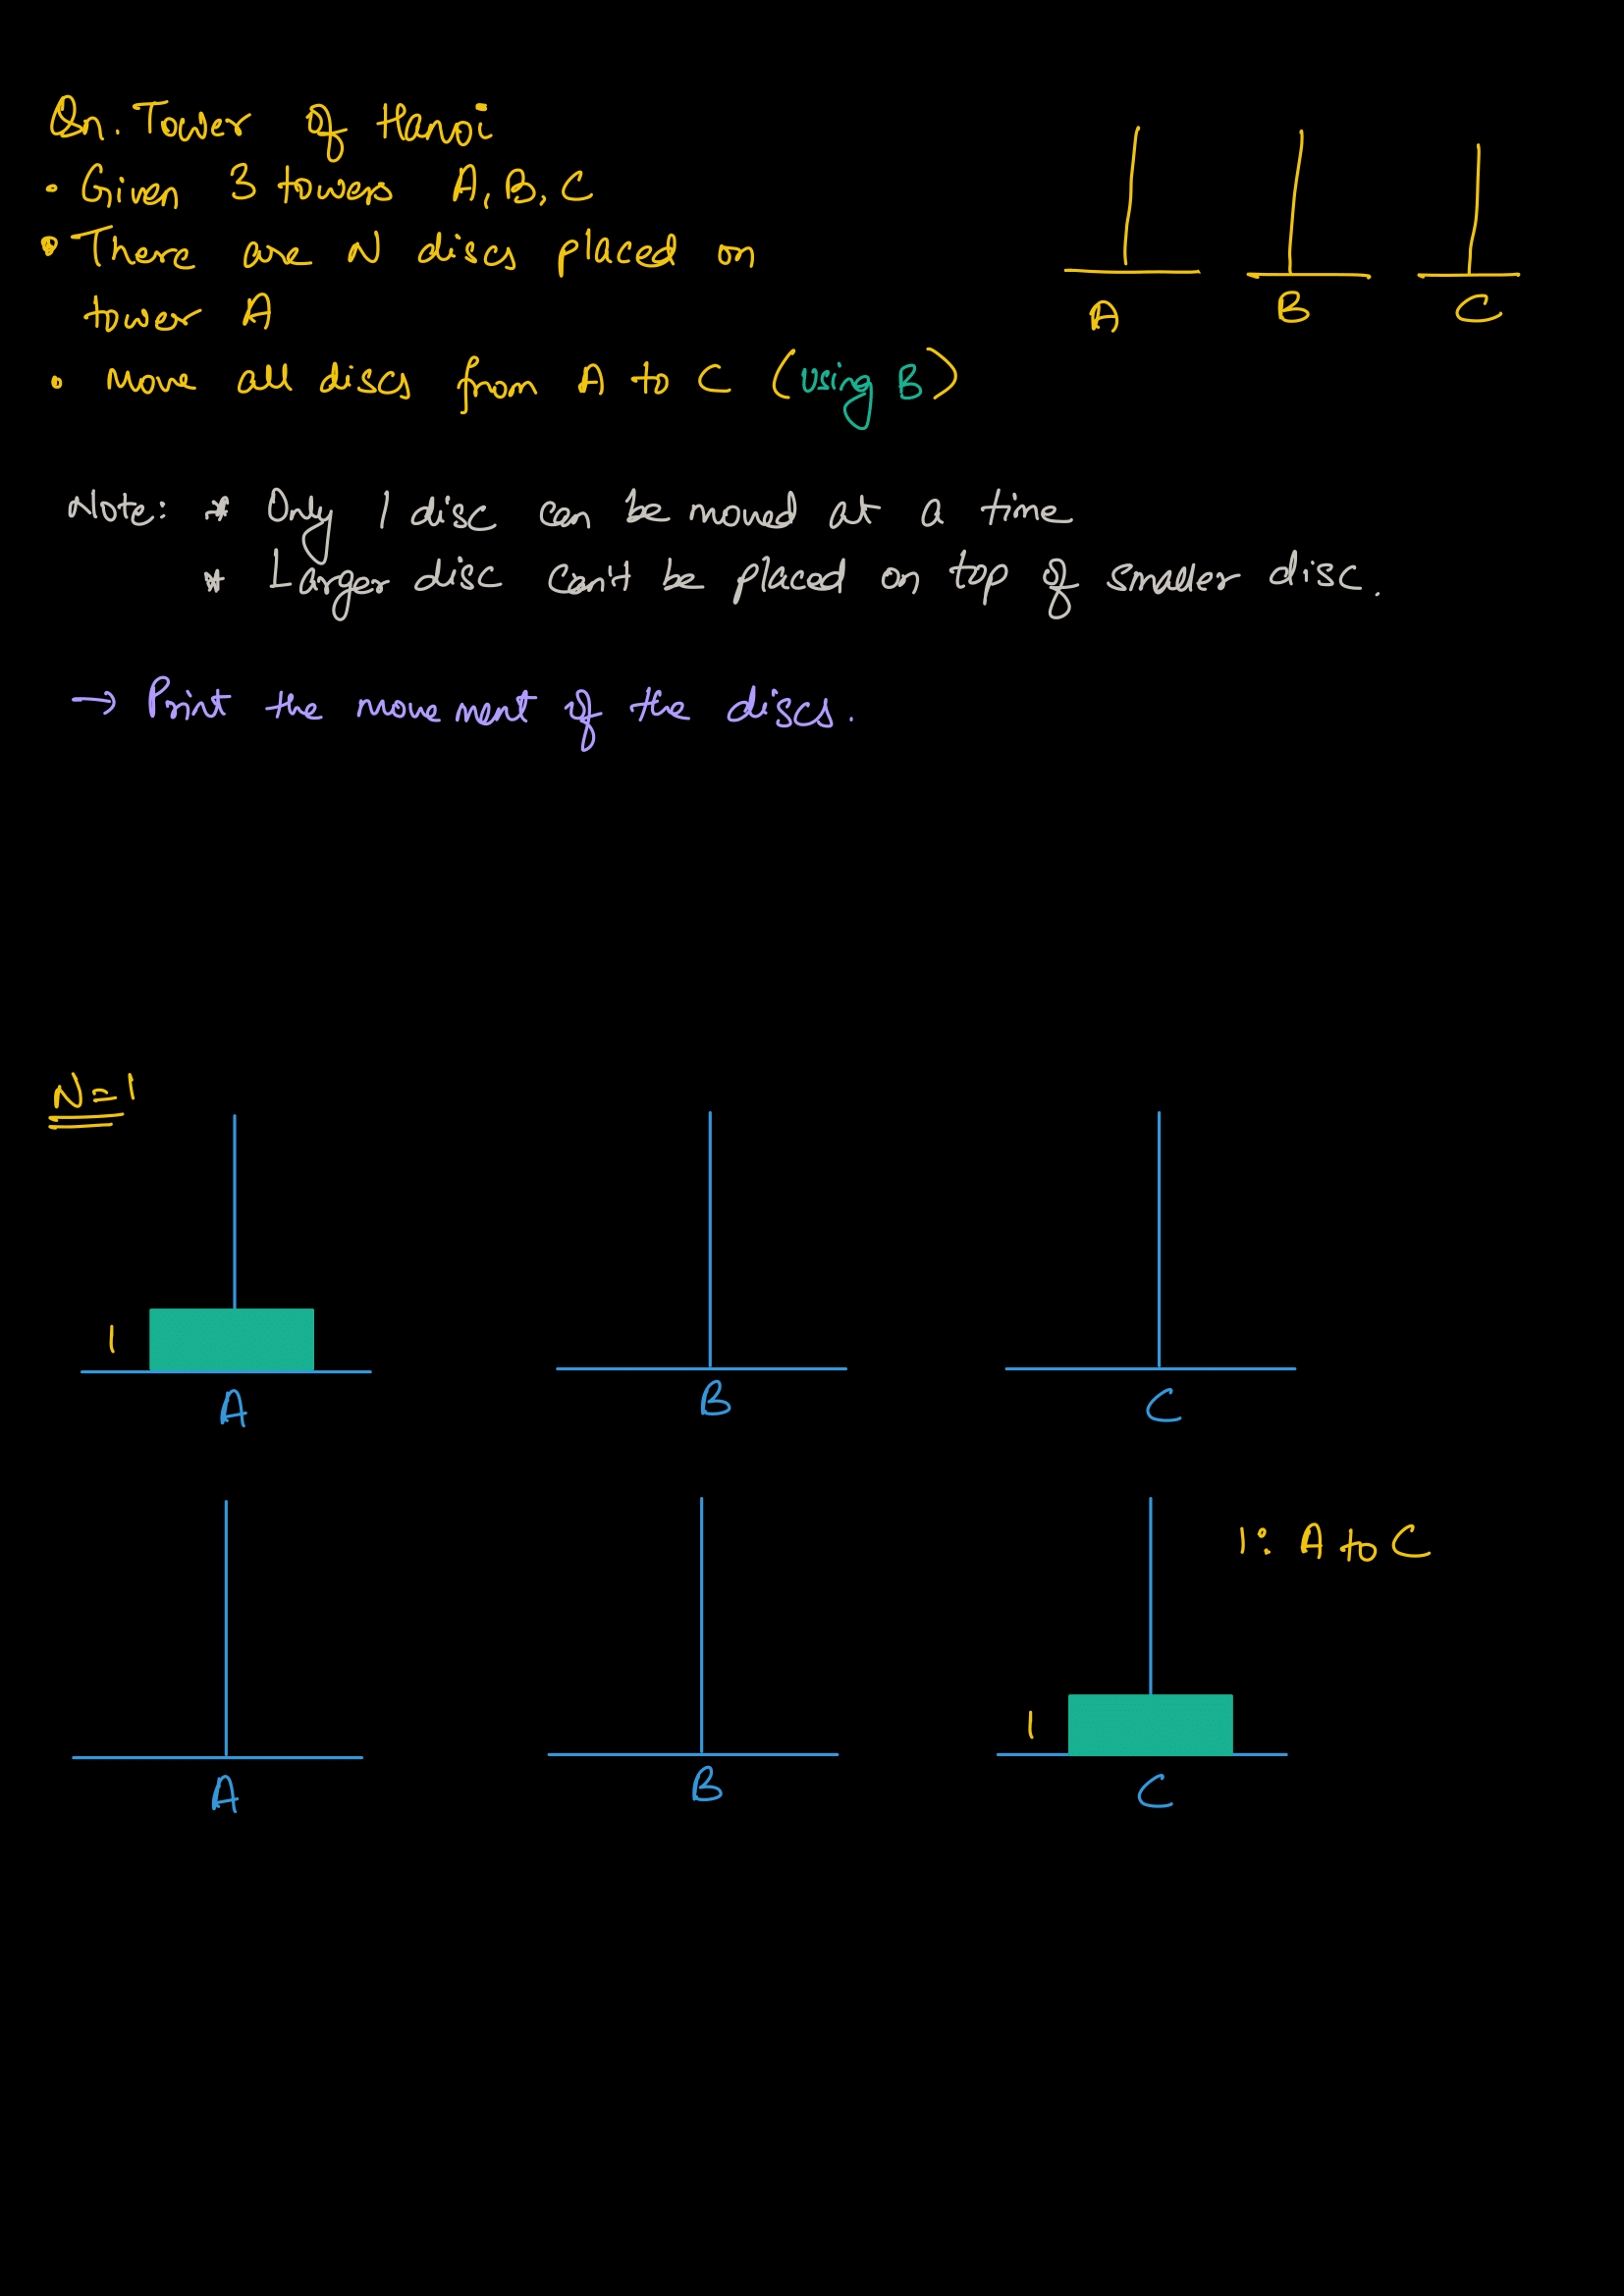 Qn. Tower of Hanoi
• Given 3 towers A, B, C
• There are N discs placed on
tower A
• Move all discs from A to C (using B)
A B C
Note: * Only 1 disc can be moved at a time
* Larger disc can't be placed on top of smaller disc.
→ Print the movement of the discs.
N=1
1
A B C
1: A to C
1
A B C